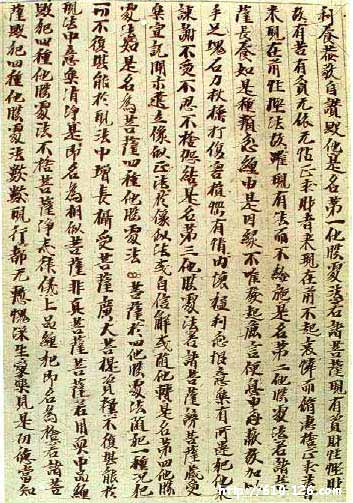 利養恭敬自讚毀他是名第一他勝處法若諸菩薩現有資財性慳財
故有苦有貧无依无怙正求財者來現在前不起哀憐而脩惠捨正求法者
來現在前性慳法故雖現有法而不給施是名第二他勝處法若諸菩
薩長養如是種類忿纏由是因緣不唯發起麁言便息由忿蔽故加以
手足塊石刀杖捶打傷害損惱有情內懷猛利忿恨意樂有所違犯他來
諫謝不受不忍不捨怨結是名第三他勝處法若諸菩薩謗菩薩藏愛
樂宣說開示建立像似正法於像似法或自信解或隨他轉是名第四他勝
處法如是名為菩薩四種他勝處法菩薩於四他勝處法隨犯一種況犯
一切不復堪能於現法中增長攝受菩薩廣大菩提資糧不復堪能於
現法中意樂清淨是即名為相似菩薩非真菩薩菩薩若用耎中品纏
毀犯四種他勝處法不捨菩薩淨戒律儀上品纏犯即名為捨若諸菩
薩毀犯四種他勝處法數數現行都无慙愧深生愛樂見是功德當知